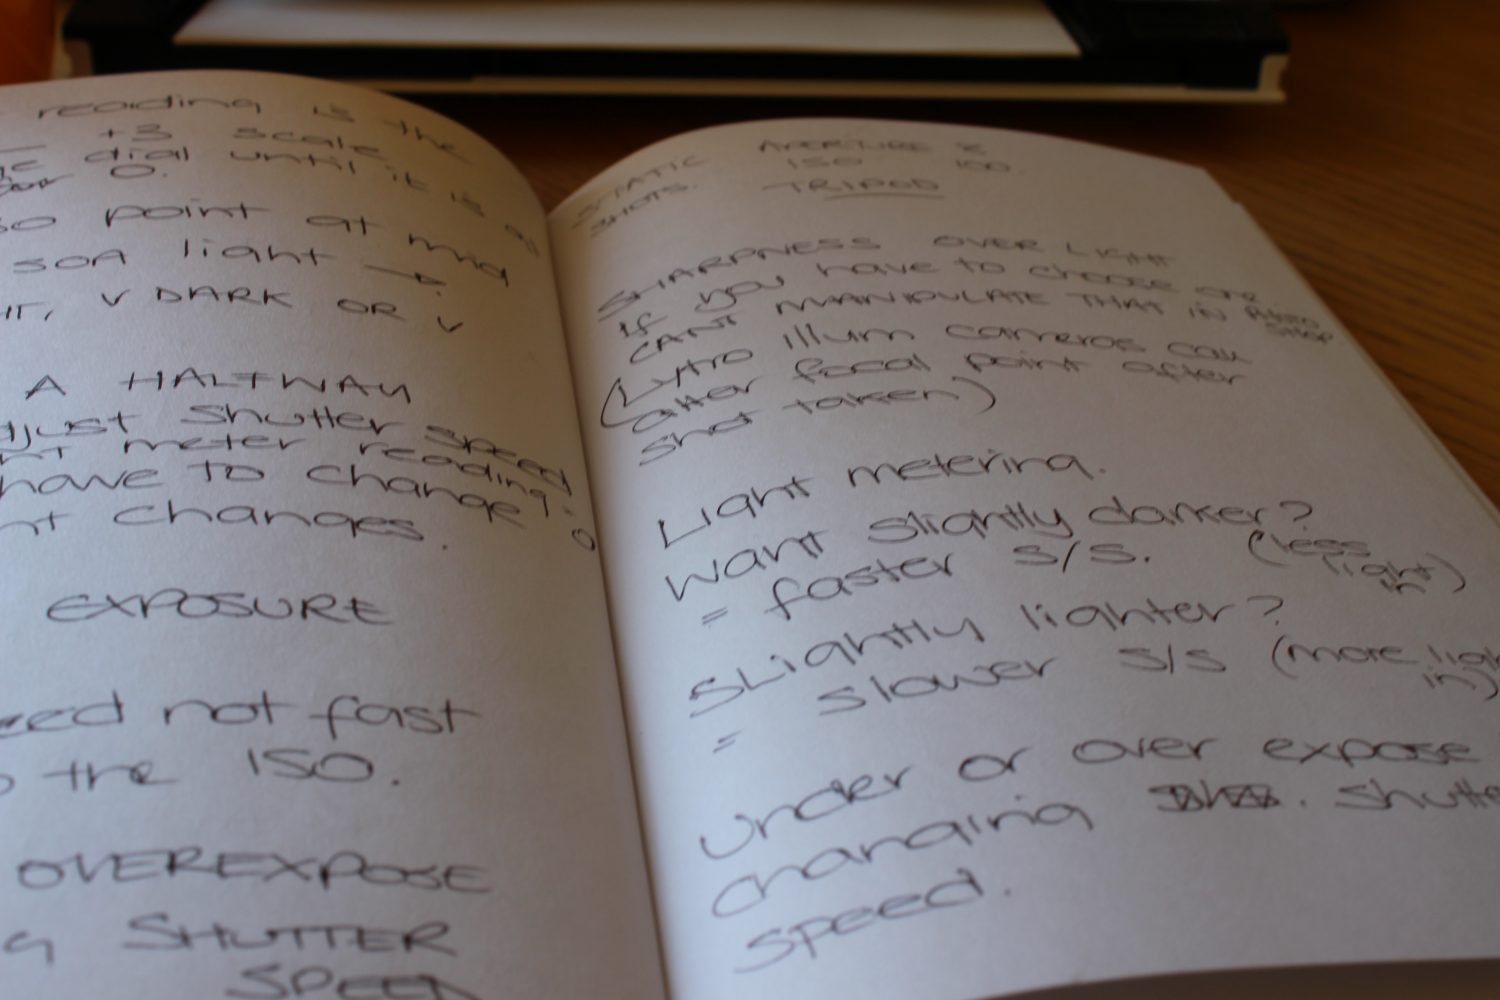 reading is the
+3 scale
dial until it is at
0.
so point at mid
light →
V DARK OR V
A HALFWAY
Shutter speed
meter reading.
have to change
changes.
EXPOSURE
not fast
the ISO.
OVEREXPOSE
SHUTTER
SPEED
STATIC
SHOTS.
APERTURE 8
ISO 100.
TRIPOD
SHARPNESS OVER LIGHT
If you have to choose one
CANT MANIPULATE THAT IN PHOTO
SHOP
(Lytro Illum cameras can
alter focal point after
shot taken)
Light metering.
Want slightly darker?
= faster s/s. (less
light
in)
Slightly lighter?
= slower s/s (more
in)
Under or over expose
changing
speed.